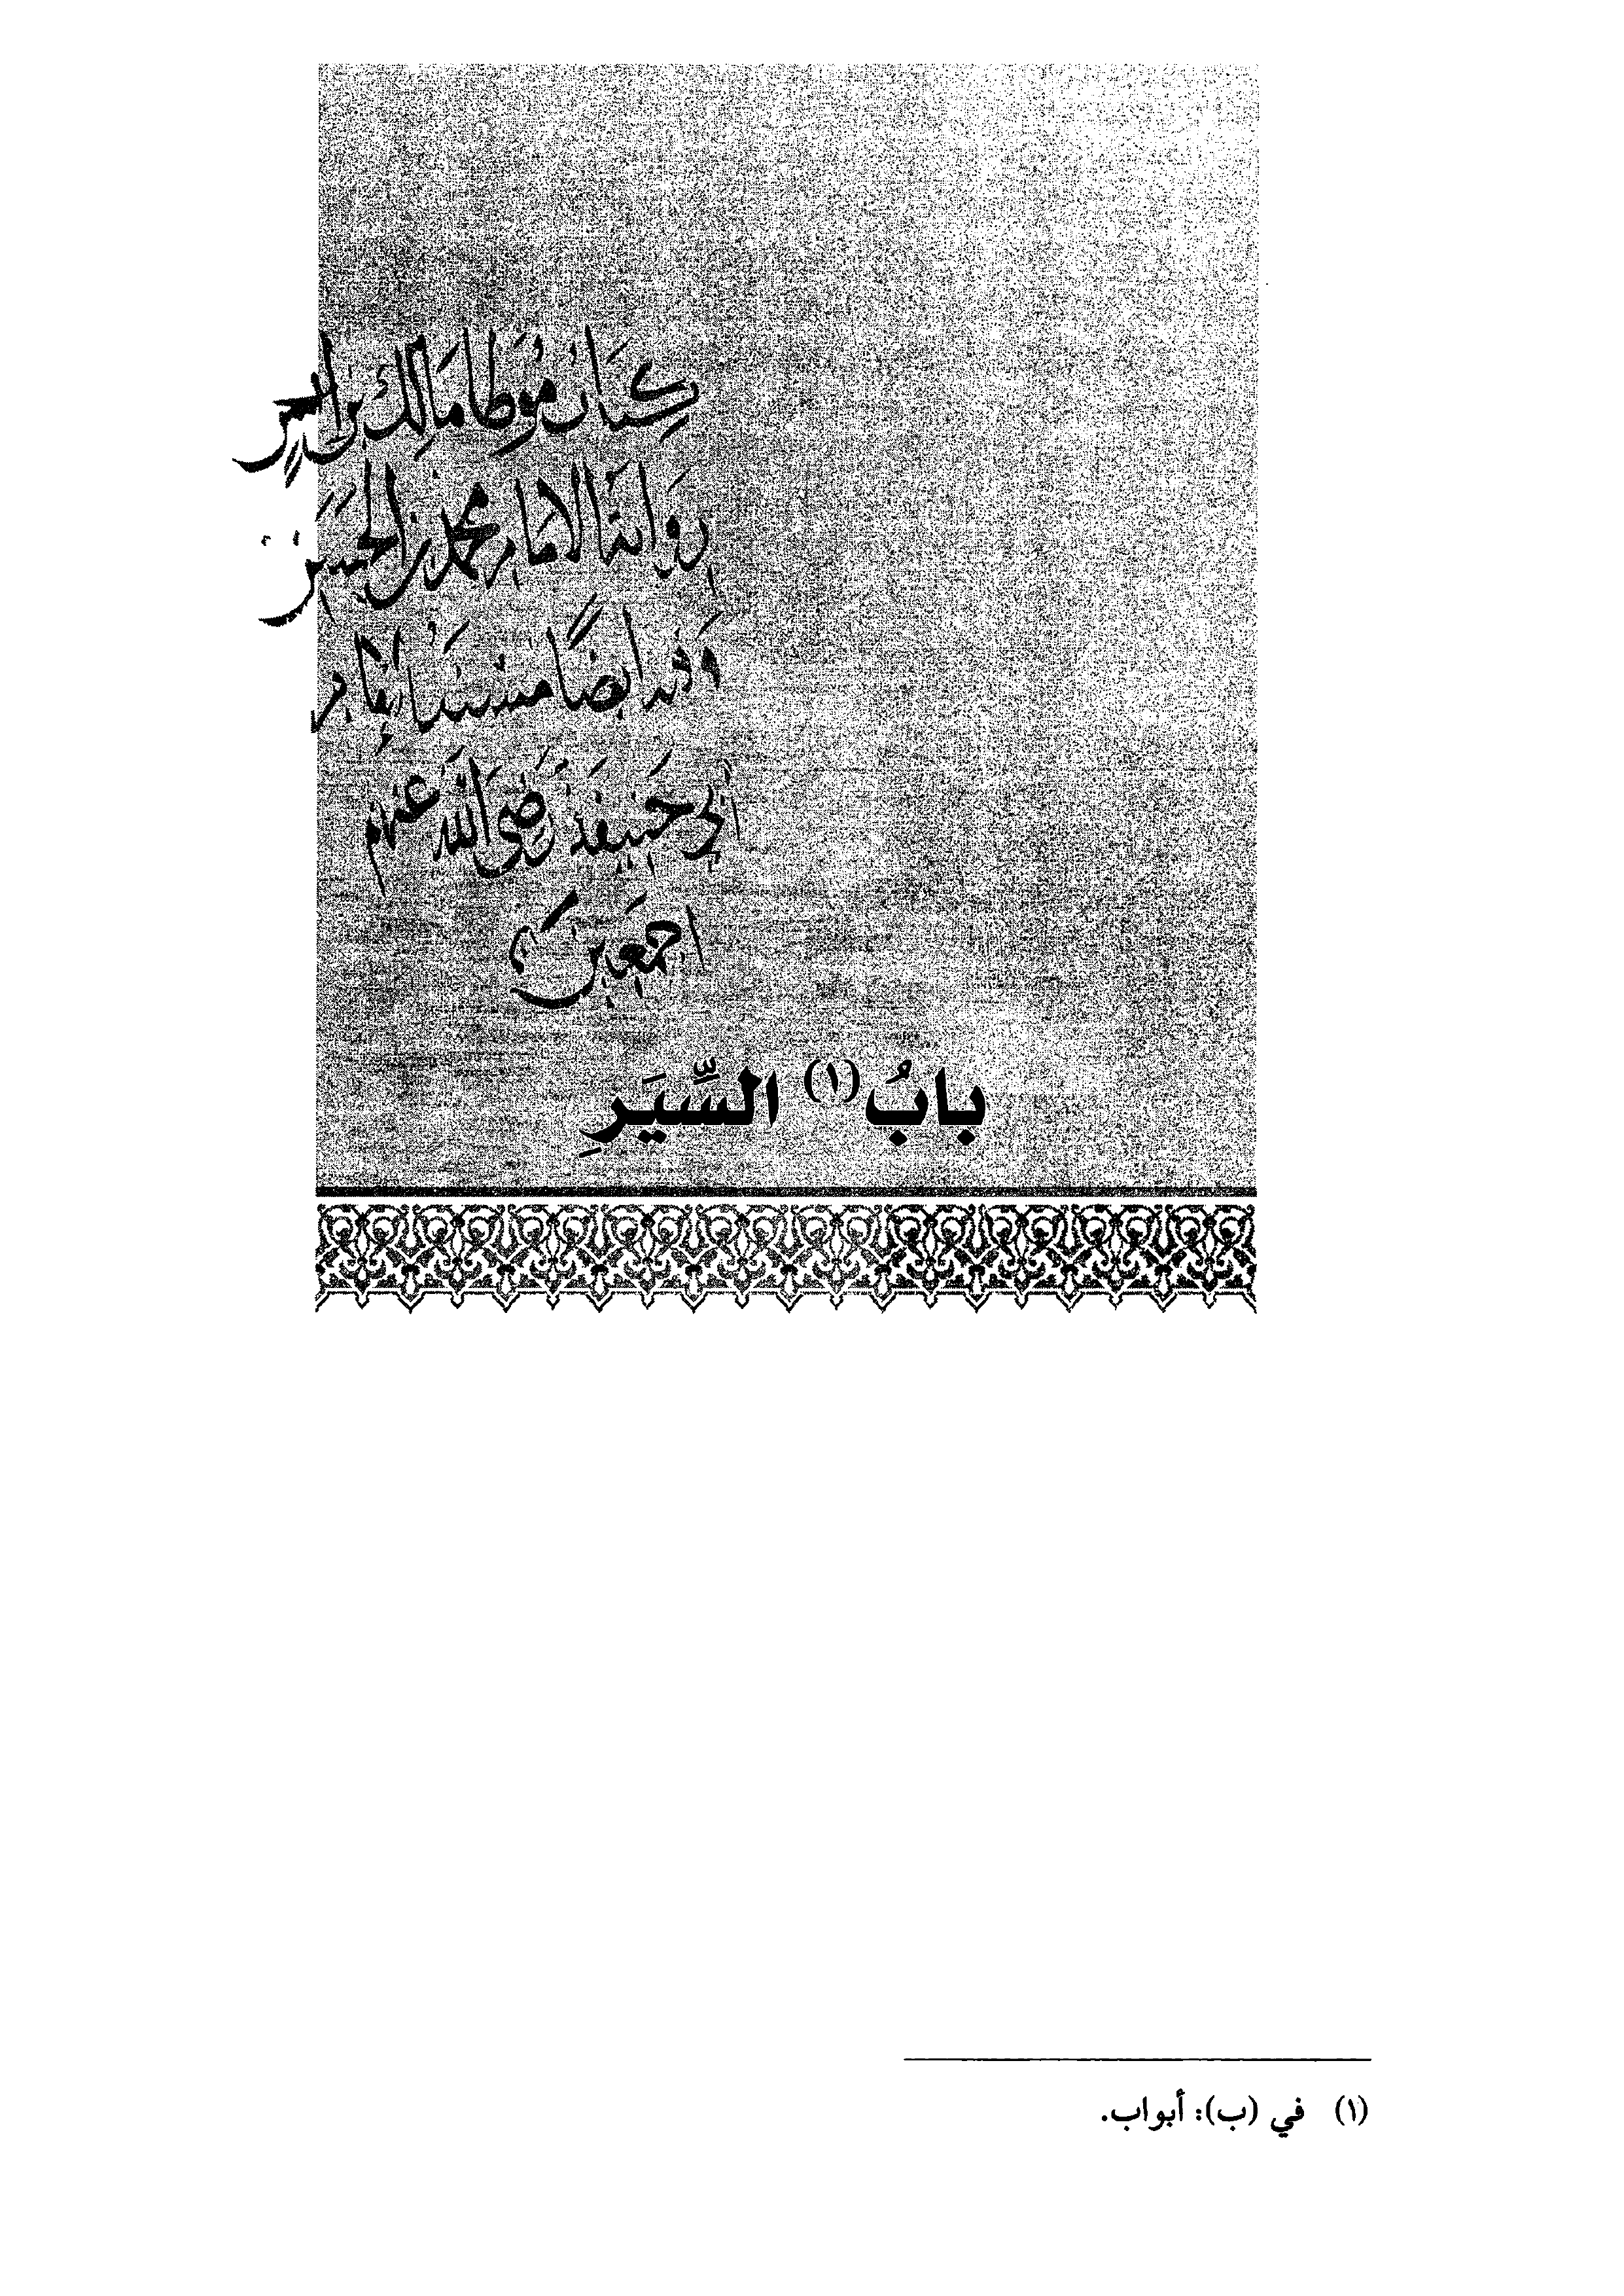 كتاب موطا مالك بن انس
رواية الامام محمد بن الحسن
وفيه ايضا مسند الامام
أبي حنيفة رضي الله عنهم
اجمعين
بابُ(١) السِّيَرِ
(١) في (ب): أبواب.